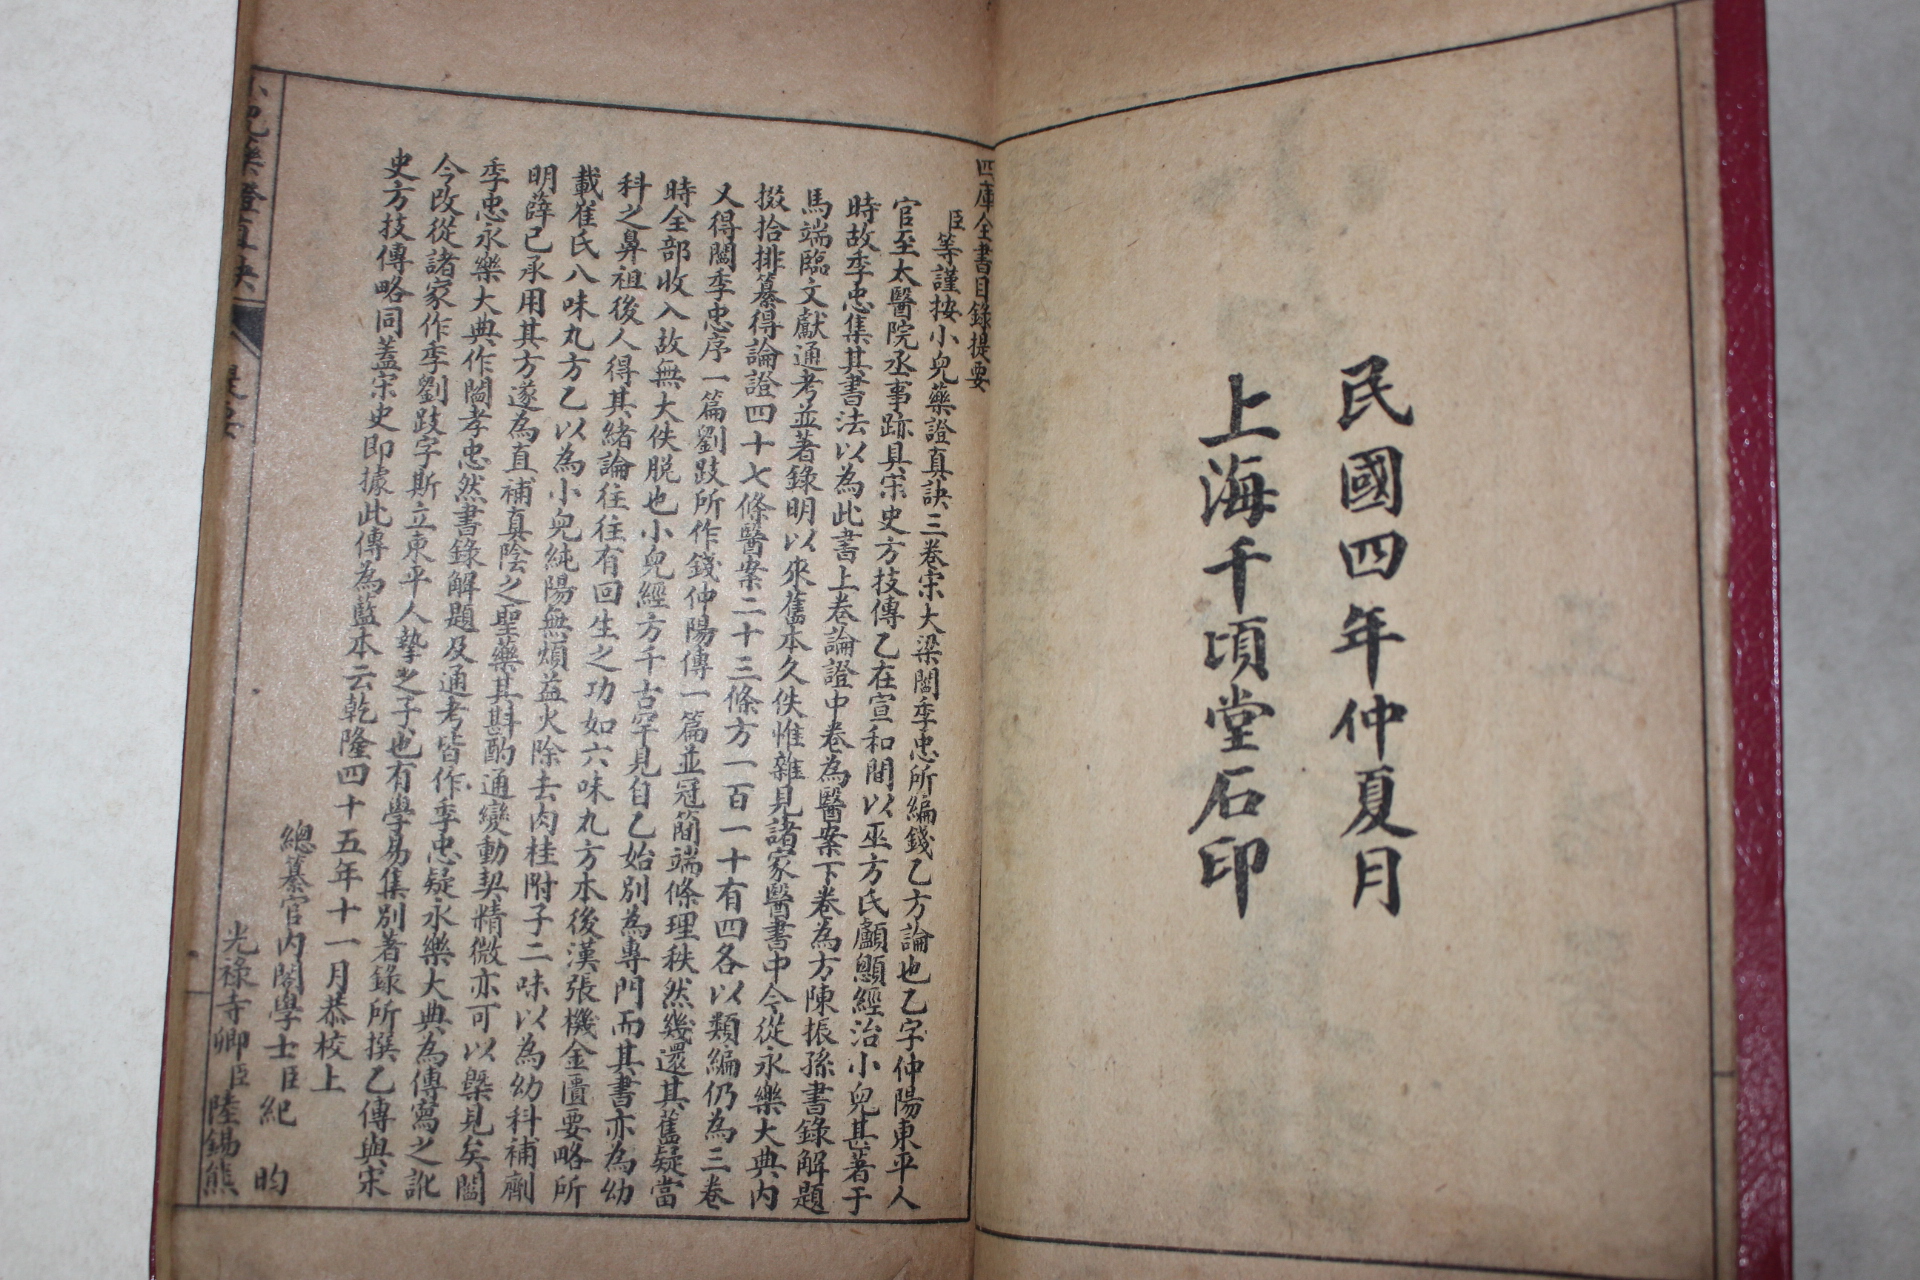 民國四年仲夏月
上海千頃堂石印
四庫全書目錄提要
臣等謹按小兒藥證真訣三卷宋大梁閻季忠所編錢乙方論也乙字仲陽東平人
官至太醫院丞事跡具宋史方技傳乙在宣和間以巫方氏顱顖經治小兒甚著于
時故季忠集其書法以為此書上卷論證中卷為醫案下卷為方陳振孫書錄解題
馬端臨文獻通考並著錄明以來舊本久佚惟雜見諸家醫書中今從永樂大典內
掇拾排纂得論證四十七條醫案二十三條方一百一十有四各以類編仍為三卷
又得閻季忠序一篇劉跂所作錢仲陽傳一篇並冠簡端條理秩然幾還其舊疑當
時全部收入故無大佚脫也小兒經方千古罕見自乙始別為專門而其書亦為幼
科之鼻祖後人得其緒論往往有回生之功如六味丸方本後漢張機金匱要略所
載崔氏八味丸方乙以為小兒純陽無煩益火除去肉桂附子二味以為幼科補劑
明薛己承用其方遂為直補真陰之聖藥其斟酌通變動契精微亦可以槩見矣閻
季忠永樂大典作閻孝忠然書錄解題及通考皆作季忠疑永樂大典為傳寫之訛
今改從諸家作季劉跂字斯立東平人摯之子也有學易集別著錄所撰乙傳與宋
史方技傳略同蓋宋史即據此傳為藍本云乾隆四十五年十一月恭校上
總纂官內閣學士臣紀昀
光祿寺卿臣陸錫熊
小兒藥證直訣
提要